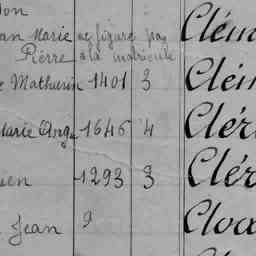 on
an Marie ne figure pas Clém
Pierre à la matricule
Mathurin 1401 3 Clém
Marie Ange 1646 4 Clér
en 1293 3 Clér
Jean 9 Cloa